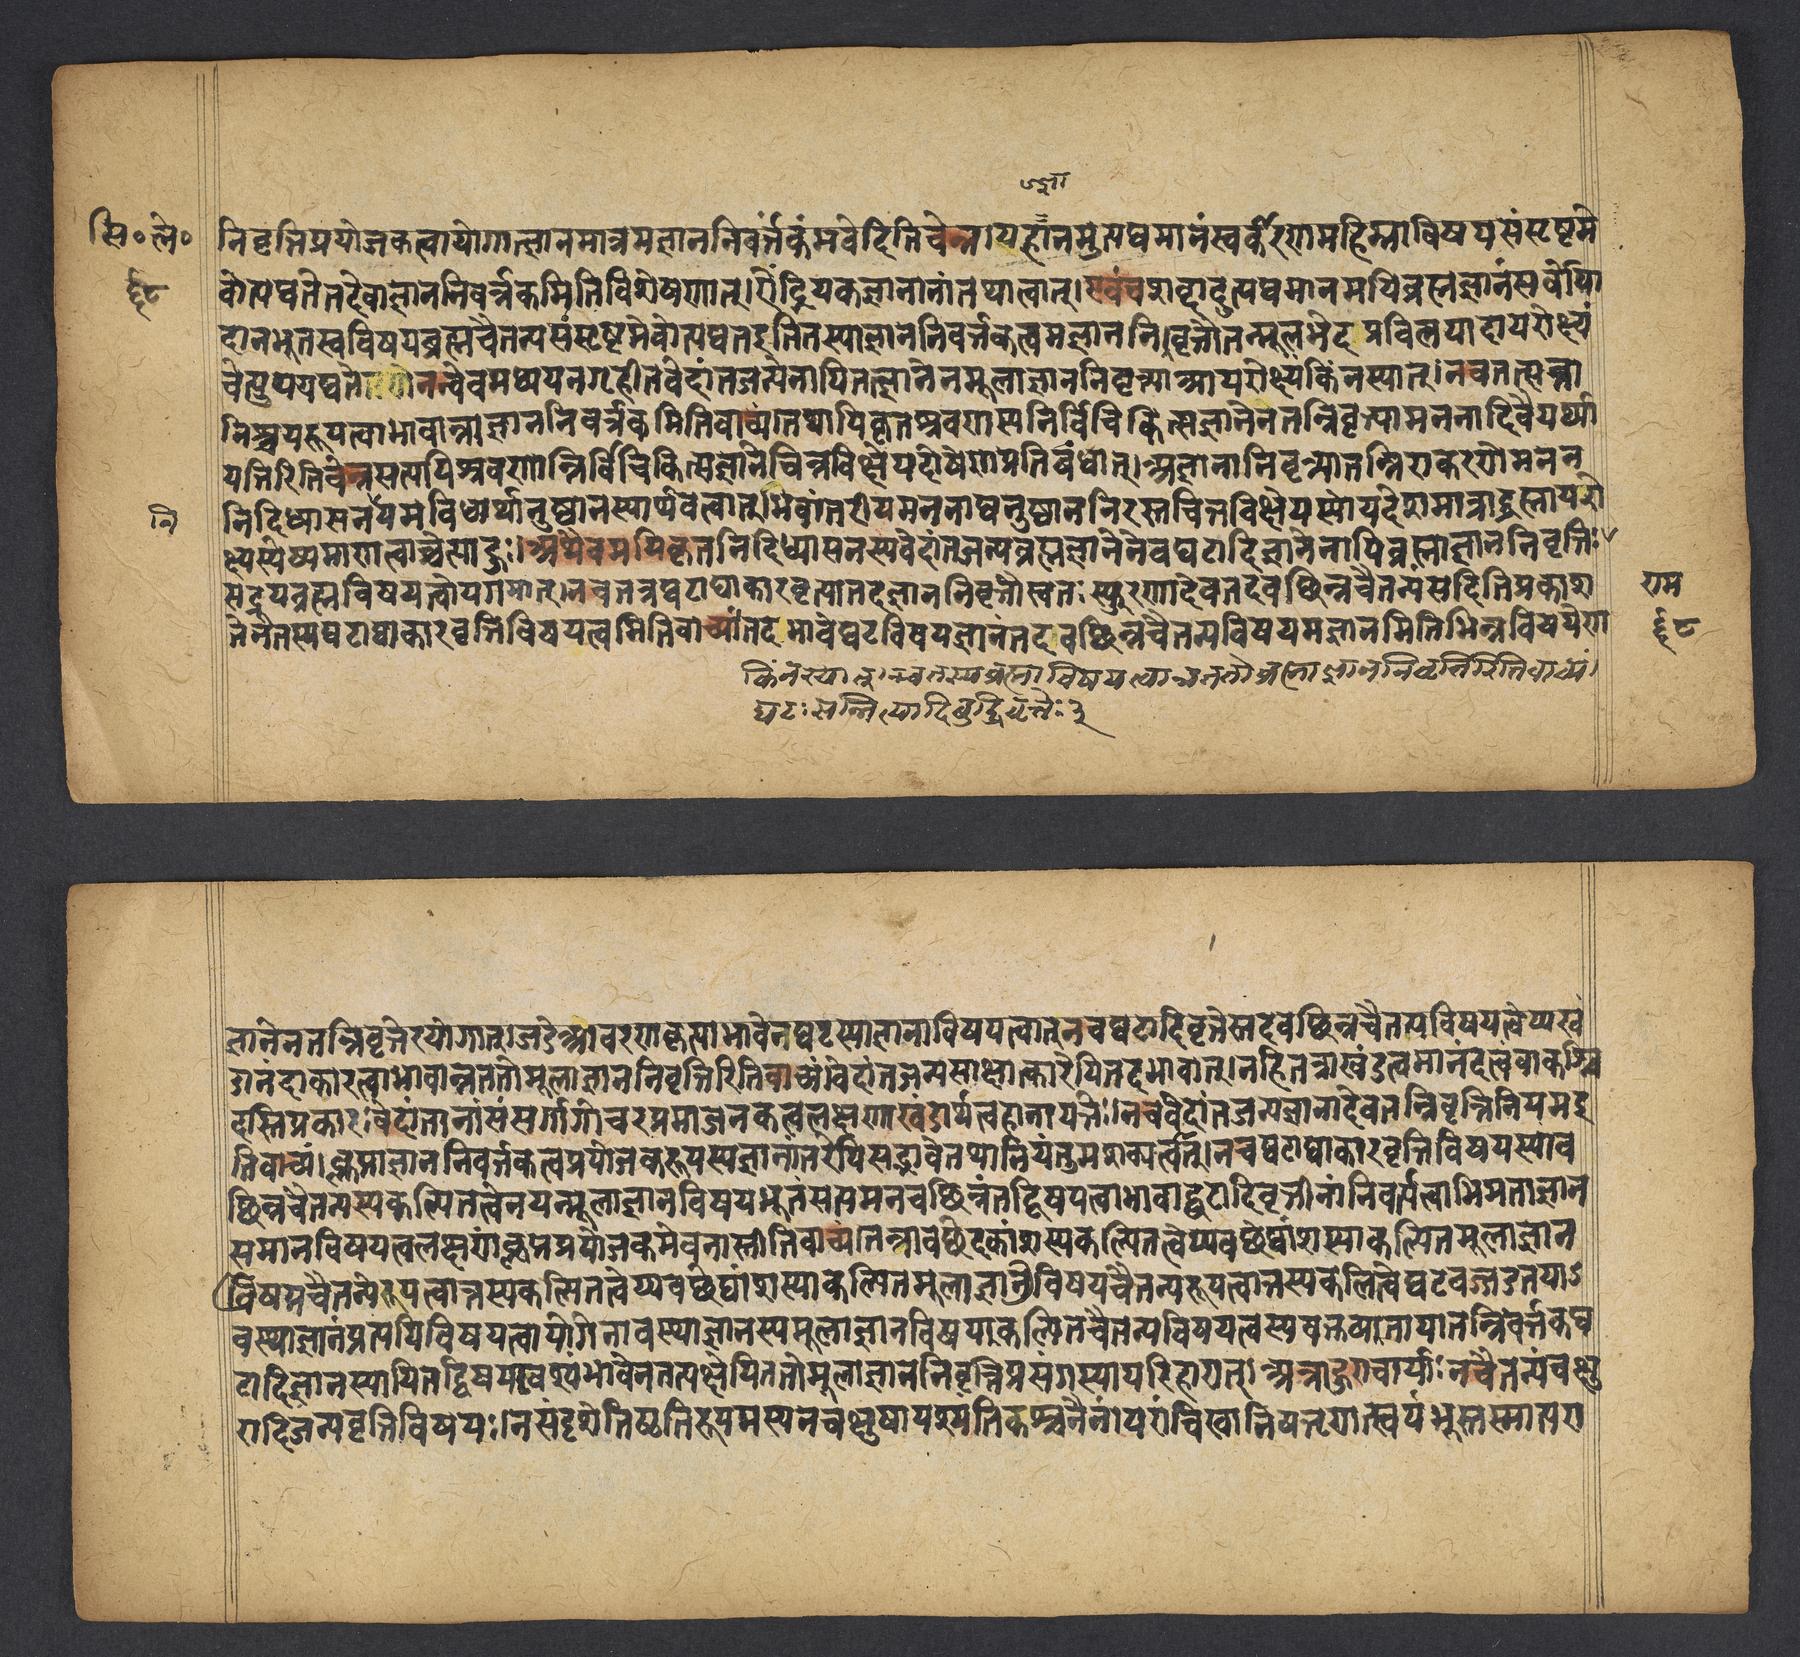 ज्ञा
सि॰ले॰ निवृत्तिप्रयोजकत्वायोगात् ज्ञानमात्रमज्ञाननिवर्त्तकं भवेदिति चेन्न । यद् ज्ञानमुत्पद्यमानं स्वकारणमहिम्ना विषयसंसृष्टमे
६८ वोत्पद्यते तदेवाज्ञाननिवर्त्तकमिति विशेषणात् । ऐंद्रियकज्ञानानां तथात्वात् । एवं च शब्दादुत्पद्यमानमपि ब्रह्मज्ञानं सर्वोपा
दानभूतस्वविषयब्रह्मचैतन्यसंसृष्टमेवोत्पद्यत इति तस्याज्ञाननिवर्त्तकत्वमज्ञाननिवृत्तौ तन्मूलभेदप्रविलयादापरोक्ष्यं
चेत्युपपद्यते । नन्वेवमध्ययनगृहीतवेदांतजन्येनापि तज्ज्ञानेन मूलाज्ञाननिवृत्त्या आपरोक्ष्यं किं न स्यात् । न च तत्सत्ता
निश्चयरूपत्वाभावान्नाज्ञाननिवर्त्तकमिति वाच्यं तथापि कृतश्रवणस्य निर्विचिकित्सज्ञानेन तन्निवृत्त्या मननादिवैयर्थ्या
पत्तिरिति चेन्न सत्यपि श्रवणान्निर्विचिकित्सज्ञाने चित्तविक्षेपदोषेण प्रतिबंधात् । अज्ञानानिवृत्त्या तन्निराकरणे मनन
नि निदिध्यासननियमविध्यर्थानुष्ठानस्यार्थवत्वात् । भवांतरीयमननाद्यनुष्ठाननिरस्तचित्तविक्षेपस्योपदेशमात्राद्ब्रह्मापरो
क्ष्यस्येष्यमाणत्वाच्चेत्याहुः । अथैवमपि कृतनिदिध्यासनस्य वेदांतजन्यब्रह्मज्ञानेनेव घटादिज्ञानेनापि ब्रह्माज्ञाननिवृत्तिः
सद्रूपब्रह्मविषयत्वोपगमात् । न च तत्र घटाद्याकारवृत्त्या तदज्ञाननिवृत्तौ स्वतः स्फुरणादेव तदवच्छिन्नचैतन्यं सदिति प्रकाश राम
ते न तस्य घटाद्याकारवृत्तिविषयत्वमिति वाच्यं । तदभावे घटविषयज्ञानं तदवच्छिन्नचैतन्यविषयमज्ञानमिति भिन्नविषयेण ६८
किं न स्यात् । न च तस्य ब्रह्माविषयत्वान्न ततो ब्रह्माज्ञाननिवृत्तिरिति वाच्यं ।
घटः सन्नित्यादिबुद्धिवृत्तेः
ज्ञानेन तन्निवृत्तेरयोगात् । जडे आवरणकृत्याभावेन घटस्याज्ञानाविषयत्वात् । न च घटादिवृत्तेस्तदवच्छिन्नचैतन्यविषयत्वेप्यखं
डानंदाकारत्वाभावान्न ततो मूलाज्ञाननिवृत्तिरिति वाच्यं । वेदांतजन्यसाक्षात्कारेपि तदभावात् । न हि तत्राखंडत्वमानंदत्वं वा कश्चि
दस्ति प्रकारः । वेदांतानां संसर्गागोचरप्रमाजनकत्वलक्षणाखंडार्थत्वहानापत्तेः । न च वेदांतजन्यज्ञानादेव तन्निवृत्तिनियम इ
ति वाच्यं । कॢप्ताज्ञाननिवर्त्तकत्वप्रयोजकरूपस्य ज्ञानांतरेपि सद्भावे तथा नियंतुमशक्यत्वात् । न च घटाद्याकारवृत्तिविषयस्याव
च्छिन्नचैतन्यस्य कल्पितत्वेन यन्मूलाज्ञानविषयभूतं सत्यमनवच्छिन्नं तद्विषयत्वाभावाद्घटादिवृत्तीनां निवर्त्यत्वाभिमताज्ञान
समानविषयत्वलक्षणं कॢप्तप्रयोजकमेव नास्तीति वाच्यं । तत्रावच्छेदकांशस्य कल्पितत्वेप्यवच्छेद्यांशस्याकल्पितमूलाज्ञान
विषयचैतन्यरूपत्वात्तस्य कल्पितत्वेप्यवच्छेद्यांशस्याकल्पितमूलाज्ञानविषयचैतन्यरूपत्वात्तस्य कल्पितत्वे घटवज्जडतयाऽ
वस्थाज्ञानं प्रत्यपि विषयत्वायोगेनावस्थाज्ञानस्य मूलाज्ञानविषयाकल्पितचैतन्यविषयत्वस्य वक्तव्यतया तन्निवर्त्तकघ
टादिज्ञानस्यापि तद्विषयत्वावश्यंभावेन तत्पक्षेपि ततो मूलाज्ञाननिवृत्तिप्रसंगस्यापरिहारात् । अत्राहुराचार्याः । न चैतन्यं चक्षु
रादिजन्यवृत्तिविषयः । न संदृशे तिष्ठति रूपमस्य न चक्षुषा पश्यति कश्चनैनं । परांचि खानि व्यतृणत्स्वयंभूस्तस्मात्परा